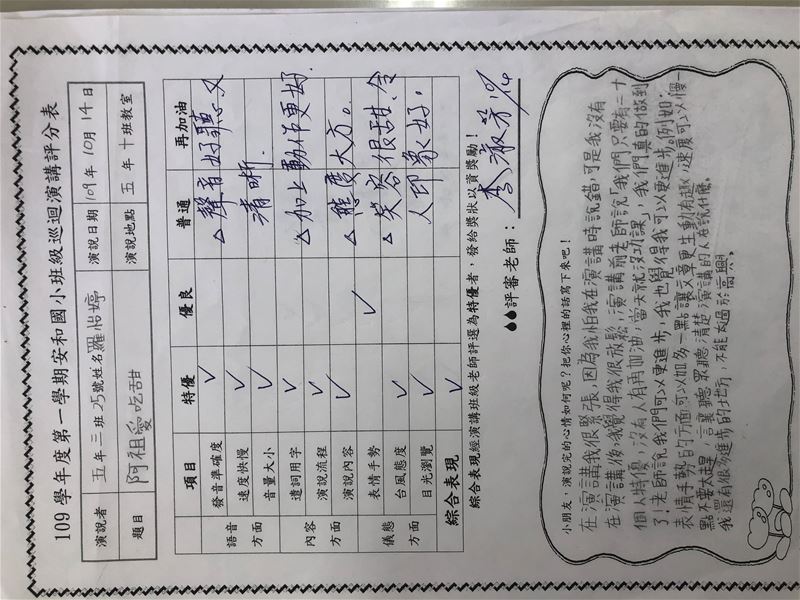 109 學年度第一學期安和國小班級巡迴演講評分表
演說者 五年三班25號姓名羅怡婷 演說日期 109年10月14日
題目 阿祖愛吃甜 演說地點 五年十班教室
項目 特優 優良 普通 再加油
語音方面 發音準確度 ✓
速度快慢 ✓
音量大小 ✓
內容方面 遣詞用字 ✓
演說流程 ✓
演說內容 ✓
儀態方面 表情手勢 ✓
台風態度 ✓
目光瀏覽 ✓
綜合表現 ✓
△聲音好聽、又
清晰.
△加上動作更好.
△態度大方。
△笑容很甜、令
人印象好.
綜合表現經演講班級老師評選為特優者,發給獎狀以資獎勵!
評審老師:李淑芳10/14
小朋友,演說完的心情如何呢?把你心裡的話寫下來吧!
在演講我很緊張,因為我怕我在演講時說錯,可是我沒有
在演講後我覺得我很放鬆,演講前老師說「我們只要有二十
個人特優,沒有人有再加油,當天就沒功課,我們真的做到
了!老師說我們可以更進步,我也覺得我可以更進步。例如:
表情手勢的方面可以加多一點讓文章更生動有趣,速度可以慢一
點不要太趕,讓聽眾聽清楚演講的人在說什麼。
我還有很多進步的地方,不能太過於高興。